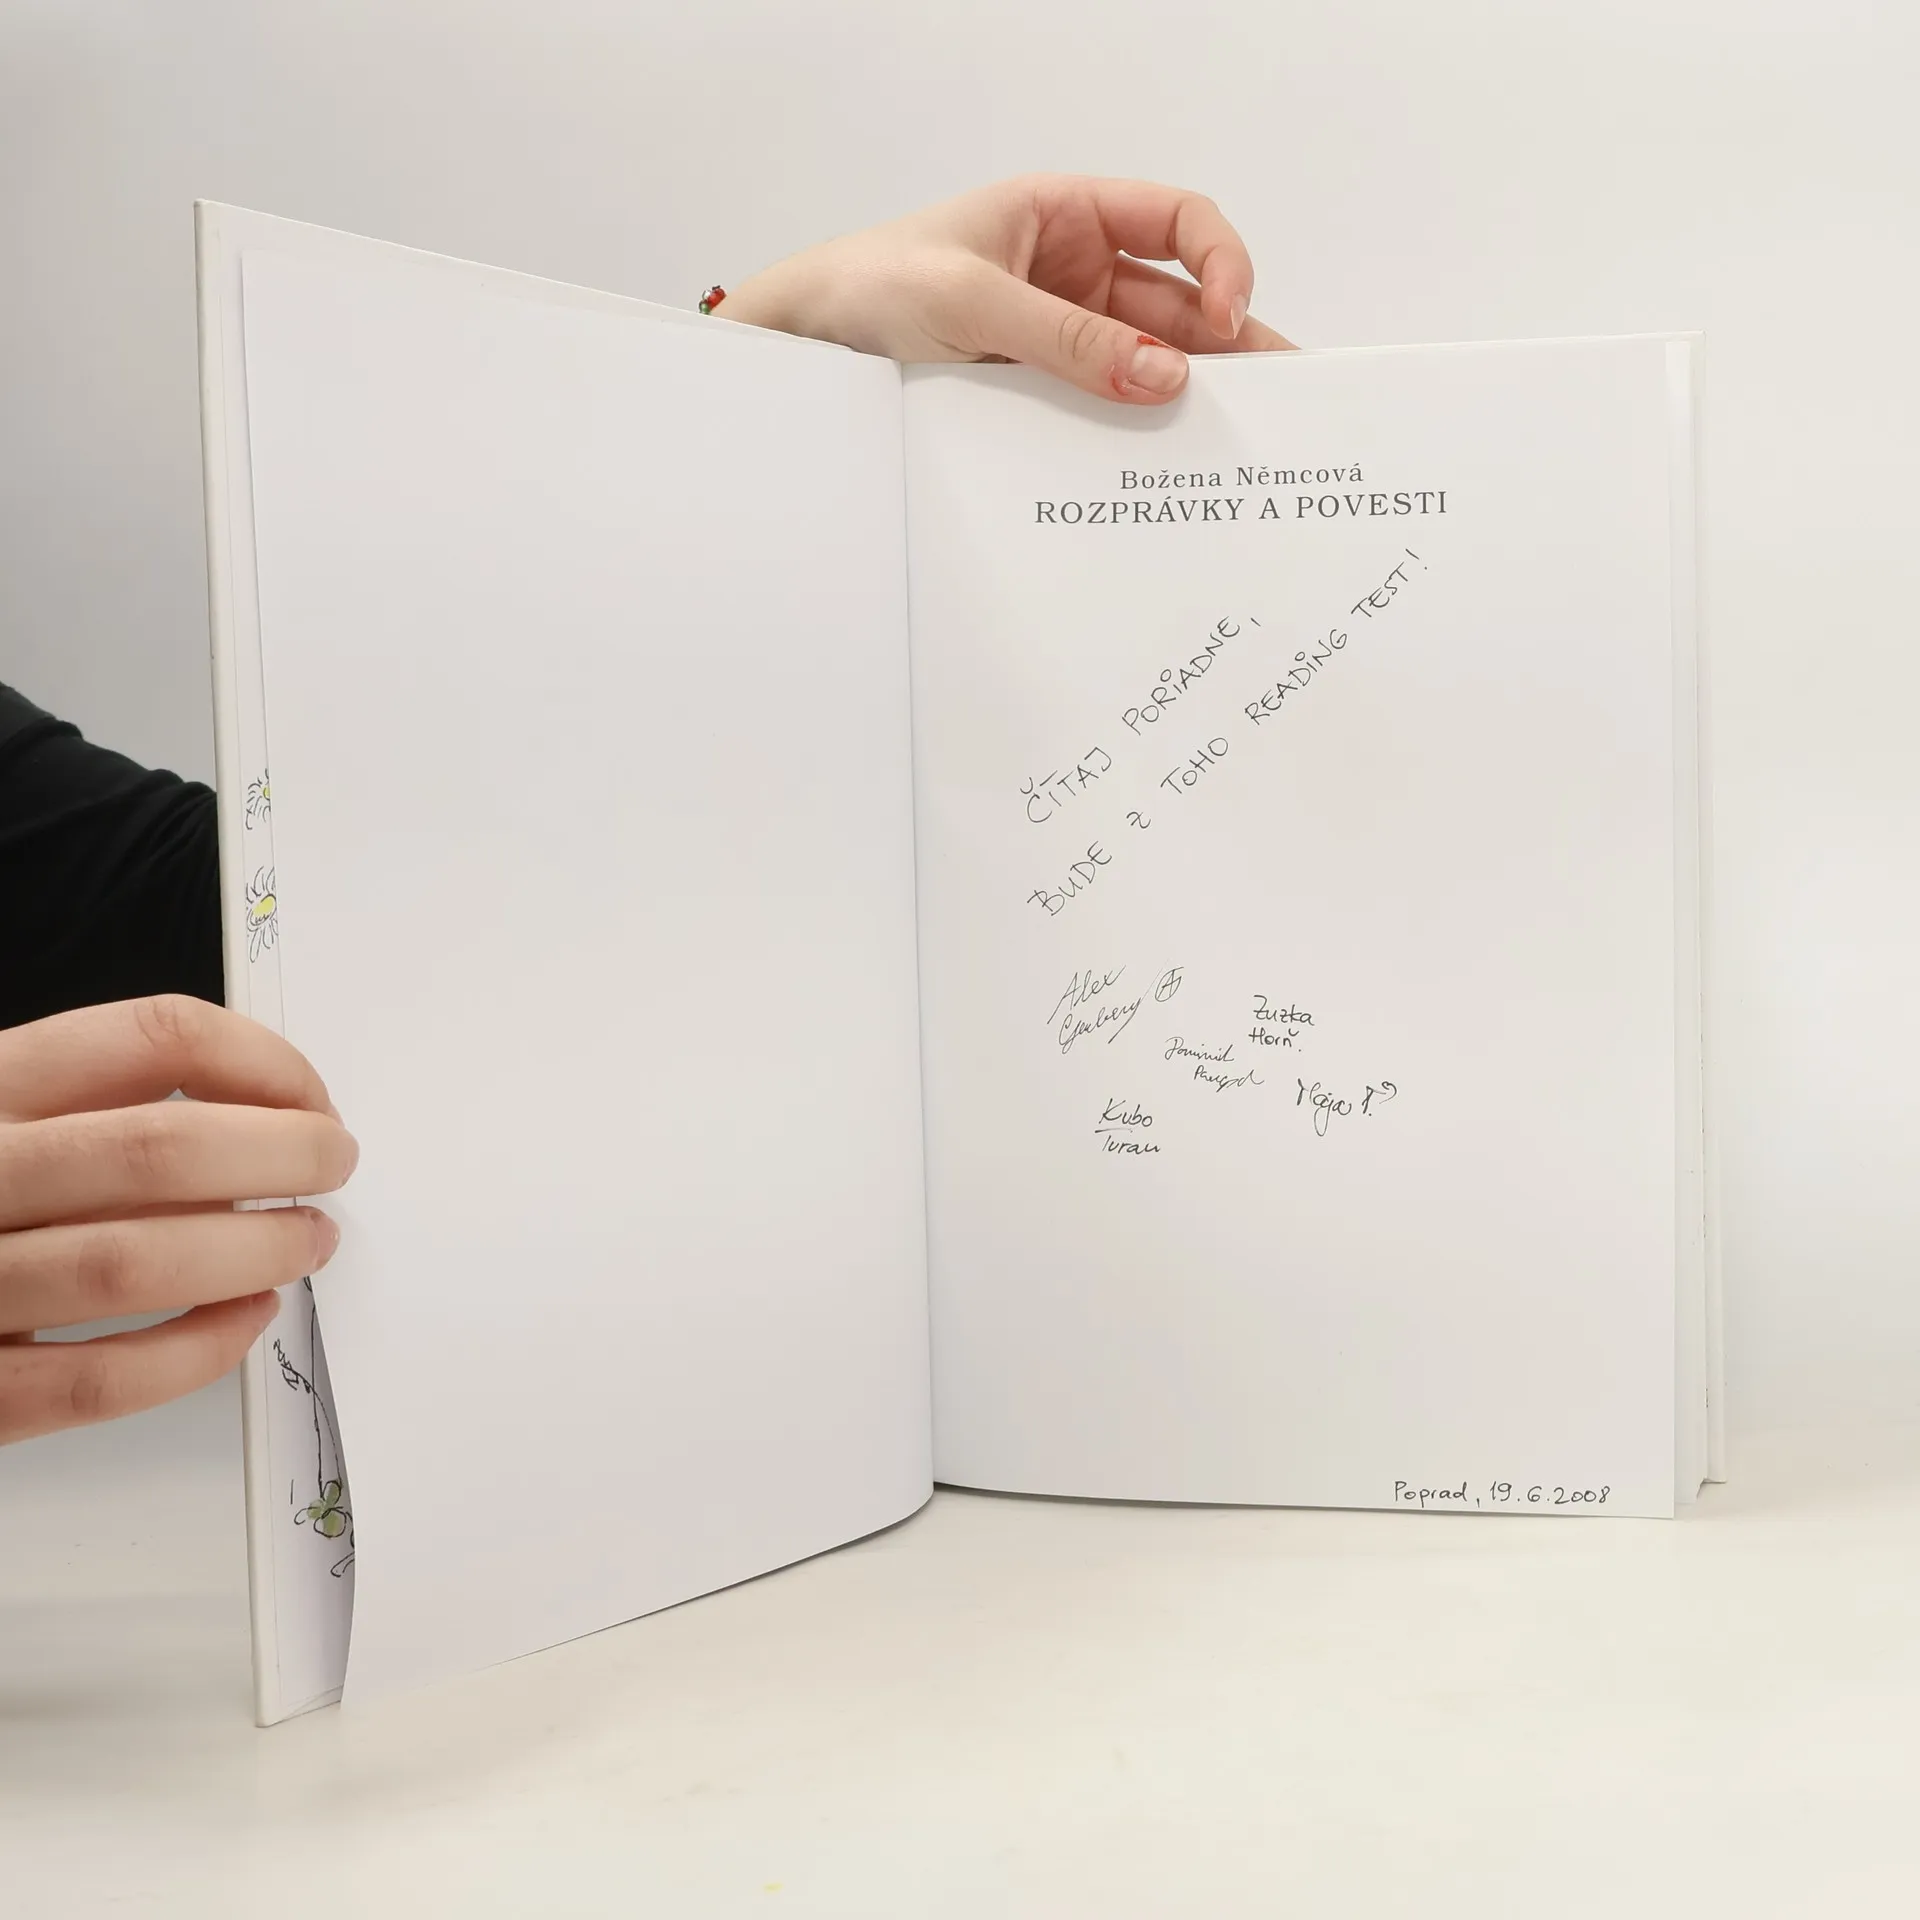 Božena Němcová
ROZPRÁVKY A POVESTI
ČÍTAJ PORIADNE,
BUDE z TOHO READING TEST!
Alex
Zuzka
Horň.
Kubo
Poprad, 19.6.2008